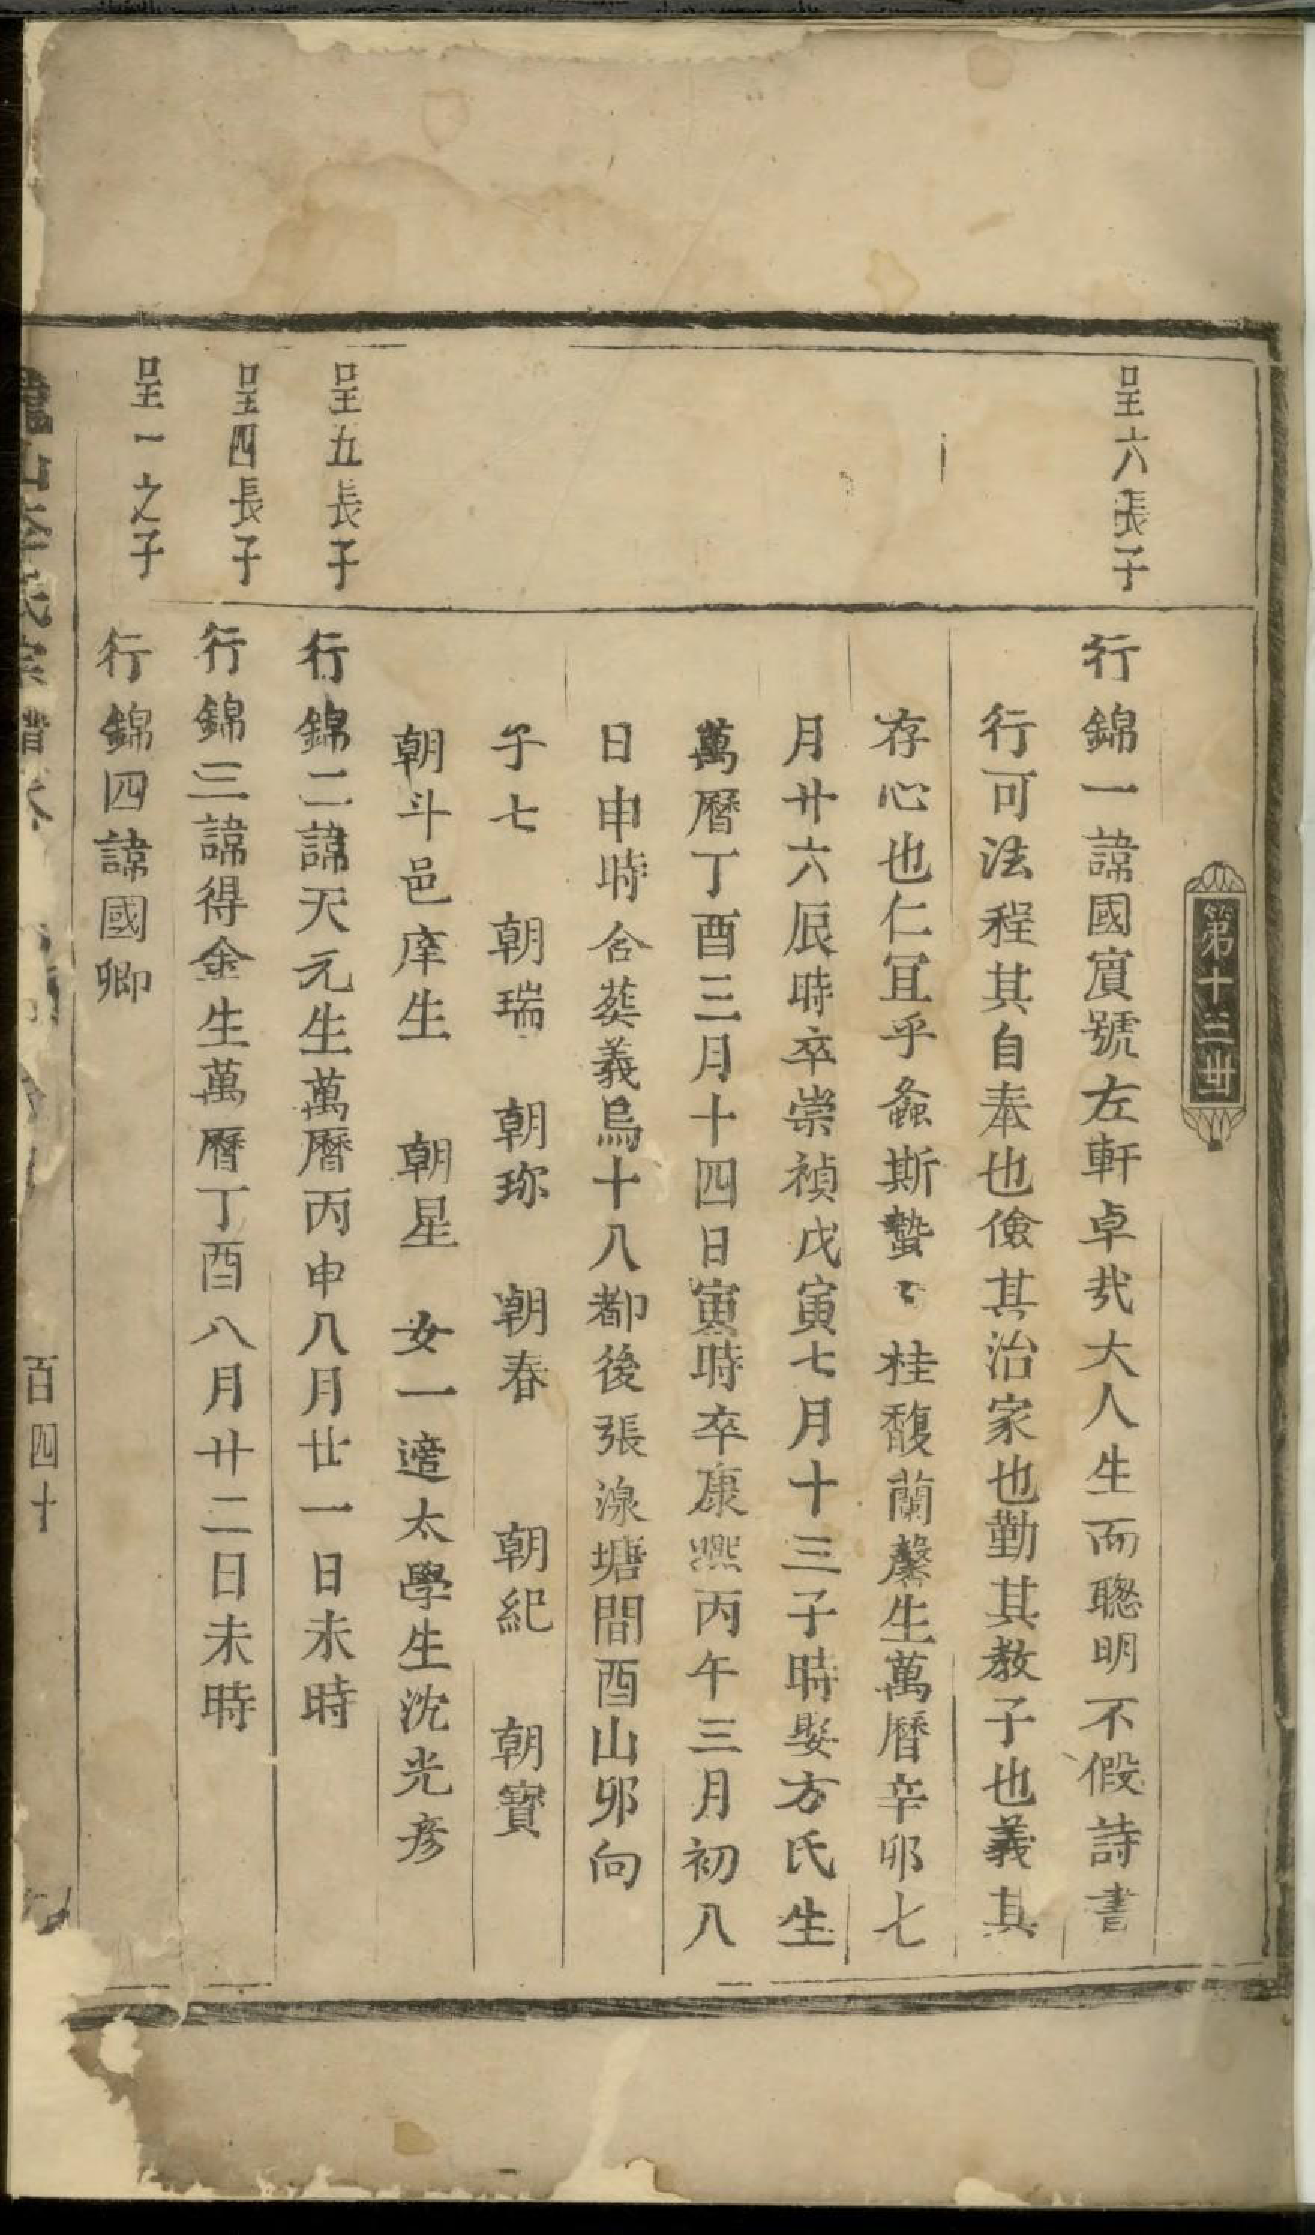 第十三世
呈六長子
行錦一諱國賓號左軒卓哉大人生而聰明不假詩書
行可法程其自奉也儉其治家也勤其教子也義其
存心也仁宜乎螽斯蟄〻桂馥蘭馨生萬曆辛卯七
月廿六辰時卒崇禎戊寅七月十三子時娶方氏生
萬曆丁酉三月十四日寅時卒康熙丙午三月初八
日申時合葬義烏十八都後張湶塘間酉山卯向
子七 朝瑞 朝珎 朝春 朝紀 朝寶
朝斗邑庠生 朝星 女一適太學生沈光彦
呈五長子
行錦二諱天元生萬曆丙申八月廿一日未時
呈四長子
行錦三諱得金生萬曆丁酉八月廿二日未時
呈一之子
行錦四諱國卿
山李氏宗譜
百四十